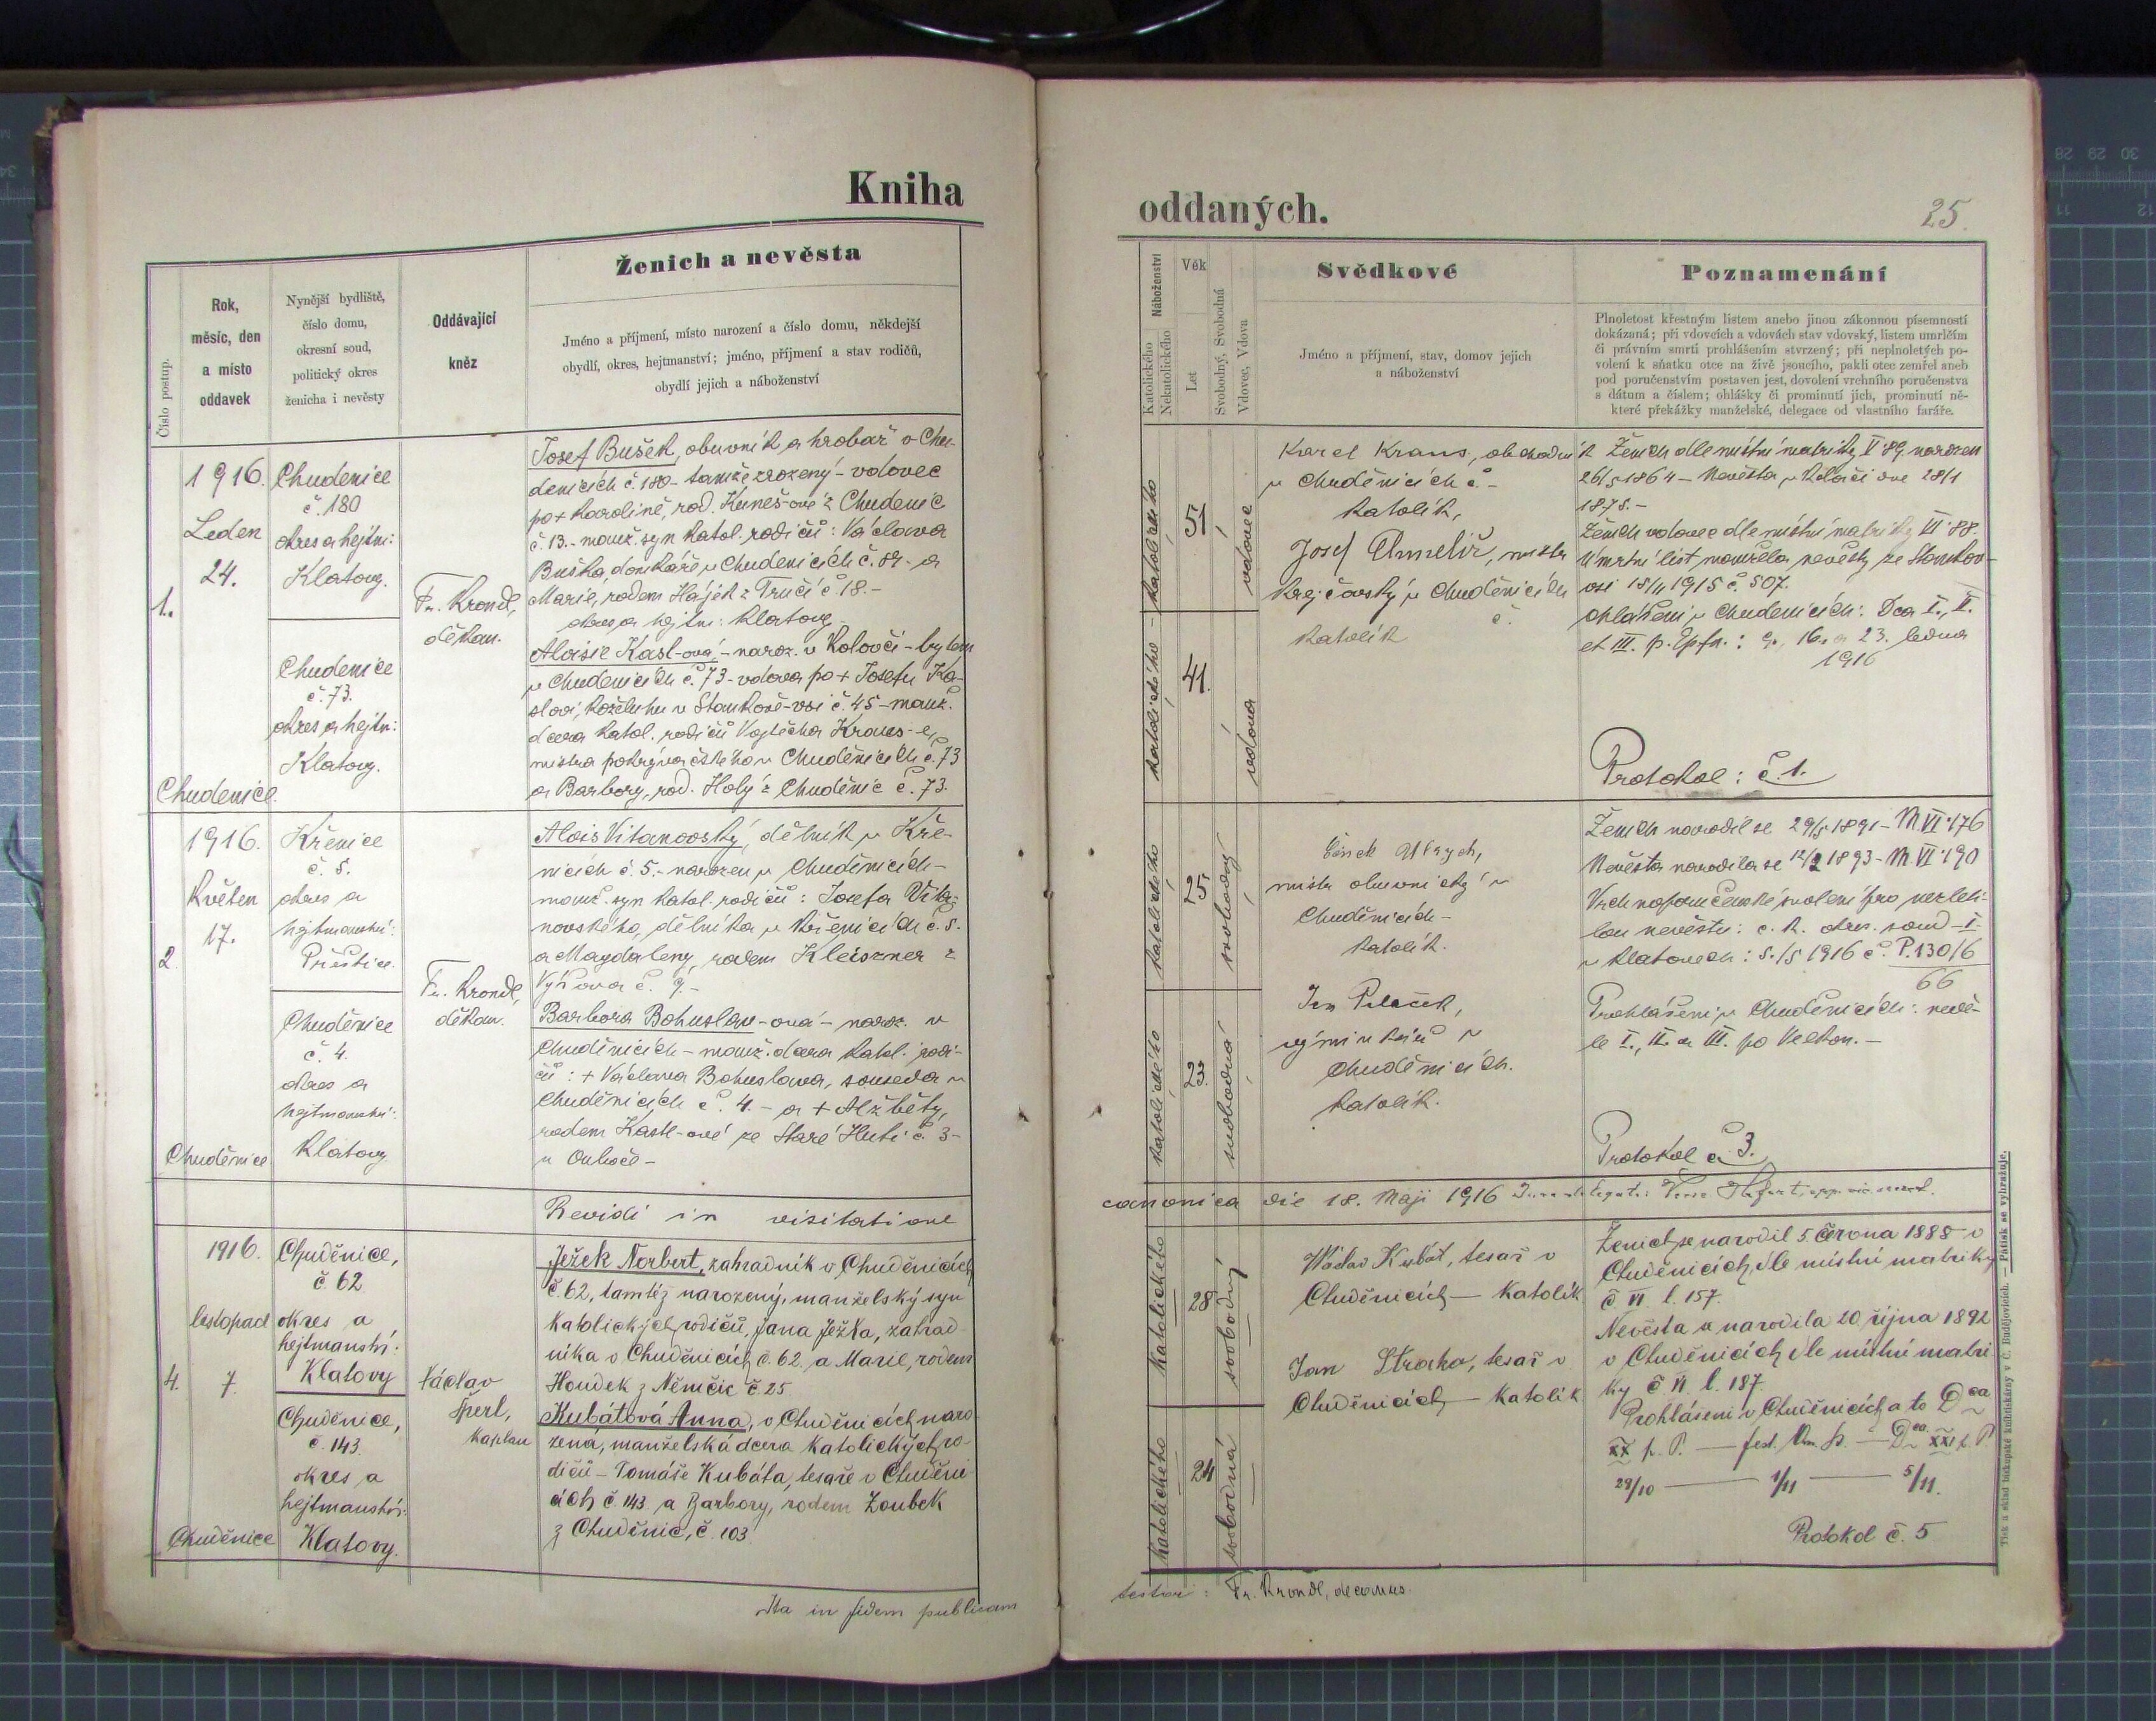 Kniha
Ženich a nevěsta
Číslo postup.
Rok,
měsíc, den
a místo
oddavek
Nynější bydliště,
číslo domu,
okresní soud,
politický okres
ženicha i nevěsty
Oddávající
kněz
Jméno a příjmení, místo narození a číslo domu, někdejší
obydlí, okres, hejtmanství; jméno, příjmení a stav rodičů,
obydlí jejich a náboženství
1.
1916.
Leden
24.
Chudenice.
Chudenice
č. 180
okres a hejtm:
Klatovy.
Chudenice
č. 73.
okres a hejtm:
Klatovy.
Fr. Krondl,
děkan.
Josef Bušek, obuvník a hrobař v Chu-
denicích č. 180 - tamže zrozený - vdovec
po + Karolině, rod. Kuneš-ové z Chudenic
č. 13. - manž. syn katol. rodičů: Václava
Buška, domkáře v Chudenicích č. 89. a
Marie, rodem Hájek z č. 18. -
okres a hejtm: Klatovy
Aloisie Kasl-ová - naroz. v Kolovči - bytem
v Chudenicích č. 73 - vdova po + Josefu Ka-
slovi, koželuhu v Staňkově-vsi č. 45 - manž.
dcera katol. rodičů Vojtěcha Kraus-e,
mistra pokrývačského v Chuděnicích č. 73
a Barbory, rod. Holý z Chuděnic č. 73.
2.
1916.
Květen
17.
Chuděnice
Křenice
č. 5.
okres a
hejtmanství:
Přeštice.
Chuděnice
č. 4.
okres a
hejtmanství:
Klatovy
Fr. Krondl,
děkan.
Alois Vitanovský, dělník v Kře-
nicích č. 5. - narozen v Chuděnicích -
manž. syn katol. rodičů: Josefa Vita-
novského, dělníka v Křenicích č. 5.
a Magdaleny, rodem Kleiszner z
č. 9. -
Barbora Bohuslav-ová - naroz. v
Chuděnicích - manž. dcera katol. rodi-
čů: + Václava Bohuslava, souseda v
Chuděnicích č. 4. - a + Alžběty,
rodem Kastl-ové ze Staré Huti č. 3 -
u
Revidi in visitatione
4.
1916.
listopad
7.
Chuděnice
Chuděnice,
č. 62
okres a
hejtmanství:
Klatovy
Chuděnice,
č. 143.
okres a
hejtmanství:
Klatovy.
Václav
Šperl,
kaplan
Ježek Norbert, zahradník v Chuděnicích
č. 62, tamtéž narozený, manželský syn
katolických rodičů, Jana Ježka, zahrad-
níka v Chuděnicích č. 62. a Marie, rodem
Houdek z Němčic č. 25
Kubátová Anna, v Chuděnicích naro-
zená, manželská dcera katolických ro-
dičů - Tomáše Kubáta, tesaře v Chuděni-
cích č. 143 a Barbory, rodem Zoubek
z Chuděnic, č. 103
Ita in fidem publicam
oddaných.
25.
Náboženství
Katolického
Nekatolického
Věk
Let
Svobodný, Svobodná
Vdovec, Vdova
Svědkové
Jméno a příjmení, stav, domov jejich
a náboženství
Poznamenání
Plnoletost křestným listem anebo jinou zákonnou písemností
dokázaná; při vdovcích a vdovách stav vdovský, listem umrlčím
či právním smrti prohlášením stvrzený; při neplnoletých po-
volení k sňatku otce na živě jsoucího, pakli otec zemřel aneb
pod poručenstvím postaven jest, dovolení vrchního poručenstva
s dátum a číslem; ohlášky či prominutí jich, prominutí ně-
které překážky manželské, delegace od vlastního faráře.
katolického -
51
vdovec
katolického
41.
vdova
Karel Kraus, obchodník
v Chuděnicích č. -
katolík,
Josef Chmelíř, mistr
krejčovský v Chuděnicích
č.
katolík
Ženich dle místní matriky V. 89. narozen
26/5 1864 - Nevěsta v Kolovči dne 28/1
1875. -
Ženich vdovec dle místní matriky III. 88.
Úmrtní list manžela nevěsty ze Staňkov-
vsi 15/11 1915 č. 507.
Ohlášení v Chudenicích: Dca I., II.
et III. p. Epfn.: 9., 16. a 23. ledna
1916
Protokol: č. 1.
katolického
25
svobodný
katolického
23.
svobodná
mistr obuvnický v
Chuděnicích -
katolík.
Jan Polaček,
výminkář v
Chuděnicích.
katolík.
Ženich narodil se 29/5 1891 - M. VI. 176
Nevěsta narodila se 12/2 1893 - M. VI. 190
Vrchnoporučenské svolení pro nezleti-
lou nevěstu: c. k. okres. soud - I.
v Klatovech: 5./5 1916 č. P. 130/6
66
Prohlášení v Chuděnicích: nedě-
le I., II. a III. po Velkon. -
Protokol č. 3.
canonica die 18. Maji 1916
katolického
28
svobodný
katolického
24
svobodná
Václav Kubát, tesař v
Chuděnicích - katolík
Jan Straka, tesař v
Chuděnicích - katolík
Ženich se narodil 5. června 1888 v
Chuděnicích, dle místní matriky
č VI l. 157.
Nevěsta se narodila 20. října 1892
v Chuděnicích dle místní matri-
ky č VI. l. 187
Prohlášeni v Chuděnicích a to Dca
XX p. P. - fest. Om. ss. - Dca XXI p. P.
29/10 - 1/11 - 5/11.
Protokol č. 5
testor: Fr. Krondl, decanus.
Tisk a sklad biskupské knihtiskárny v Č. Budějovicích. — Pátisk se vyhražuje.